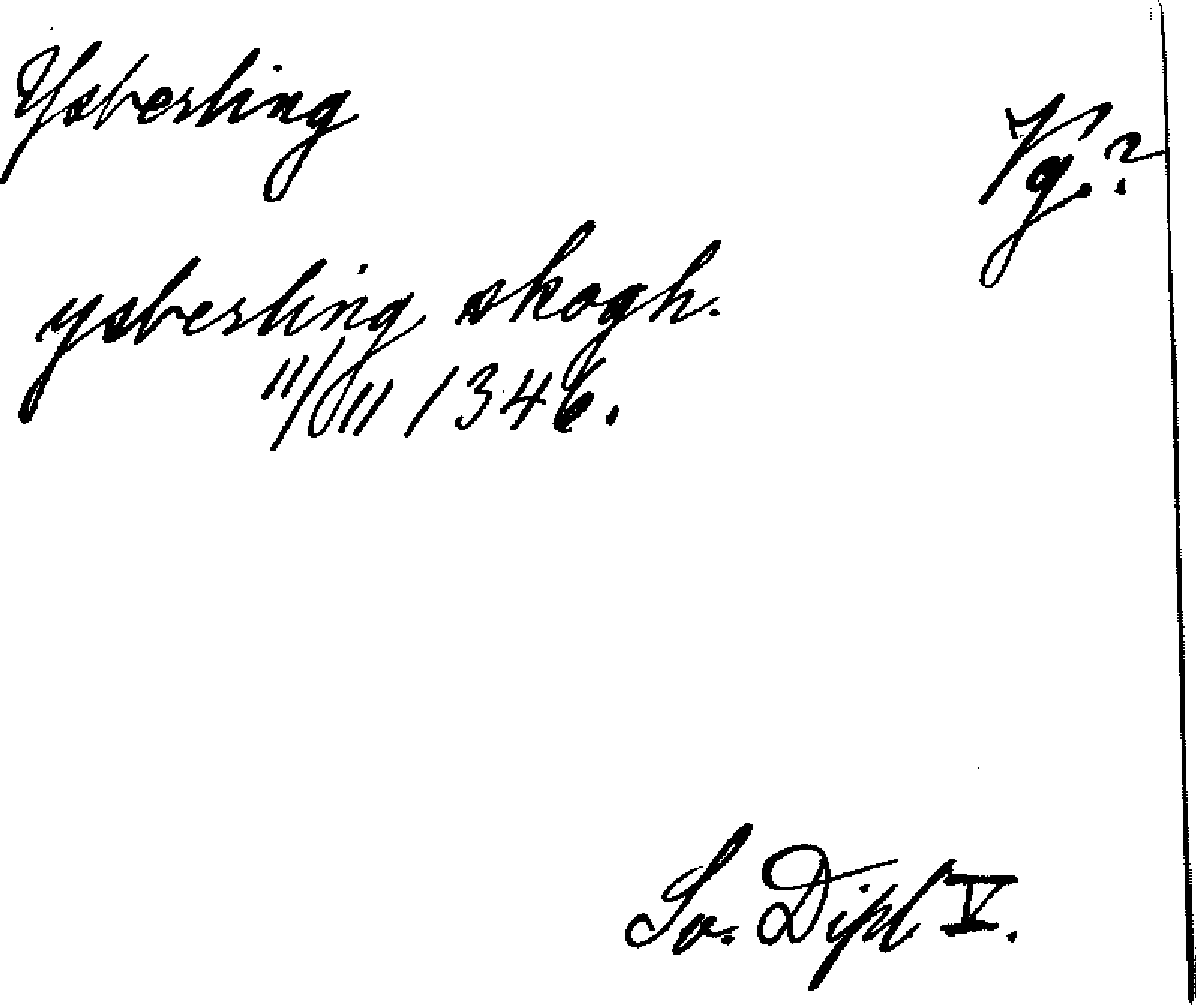 Ysberling
Vg.?
ysberling skogh.
11/11 1346.
Sv. Dipl V.